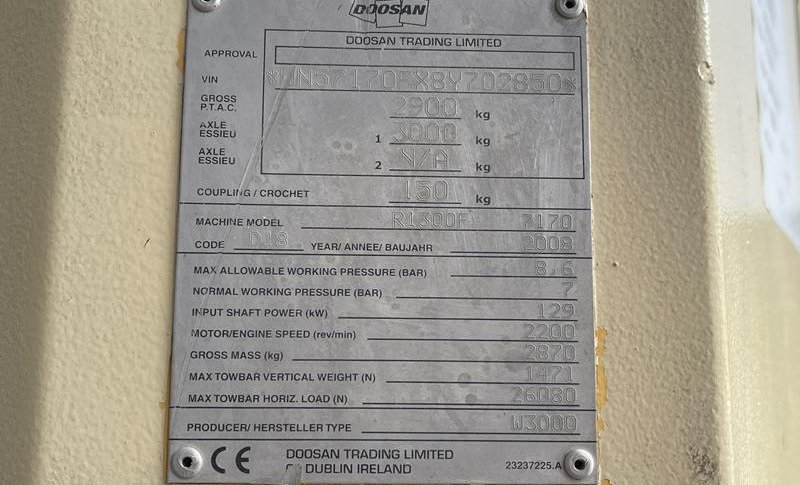 DOOSAN
DOOSAN TRADING LIMITED
APPROVAL
VIN *UN57170FX8Y702850*
GROSS P.T.A.C. 2900 kg
AXLE ESSIEU 1 3000 kg
AXLE ESSIEU 2 N/A kg
COUPLING / CROCHET 150 kg
MACHINE MODEL R1300F 7170
CODE D18 YEAR/ ANNEE/ BAUJAHR 2008
MAX ALLOWABLE WORKING PRESSURE (BAR) 8,6
NORMAL WORKING PRESSURE (BAR) 7
INPUT SHAFT POWER (kW) 129
MOTOR/ENGINE SPEED (rev/min) 2200
GROSS MASS (kg) 2870
MAX TOWBAR VERTICAL WEIGHT (N) 1471
MAX TOWBAR HORIZ. LOAD (N) 26080
PRODUCER/ HERSTELLER TYPE W3000
CE DOOSAN TRADING LIMITED
DUBLIN IRELAND 23237225.A